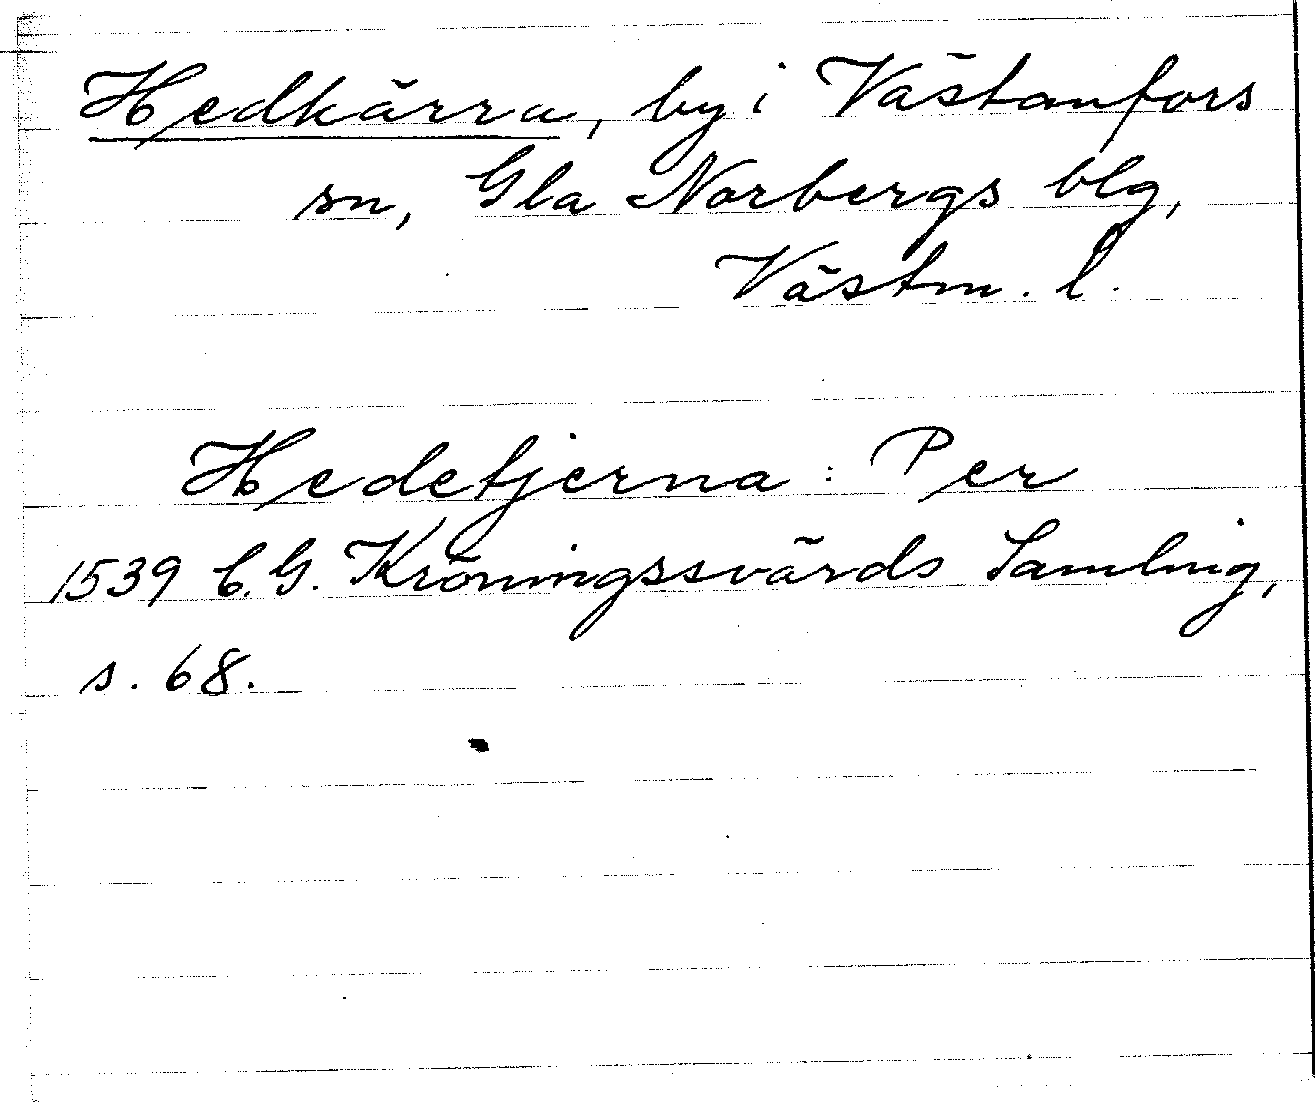 Hedkärra, by i Västanfors
sn, Gla Norbergs blg,
Västm. l.
Hedetjerna : Per
1539 C.G. Kröningssvärds Samling,
s. 68.